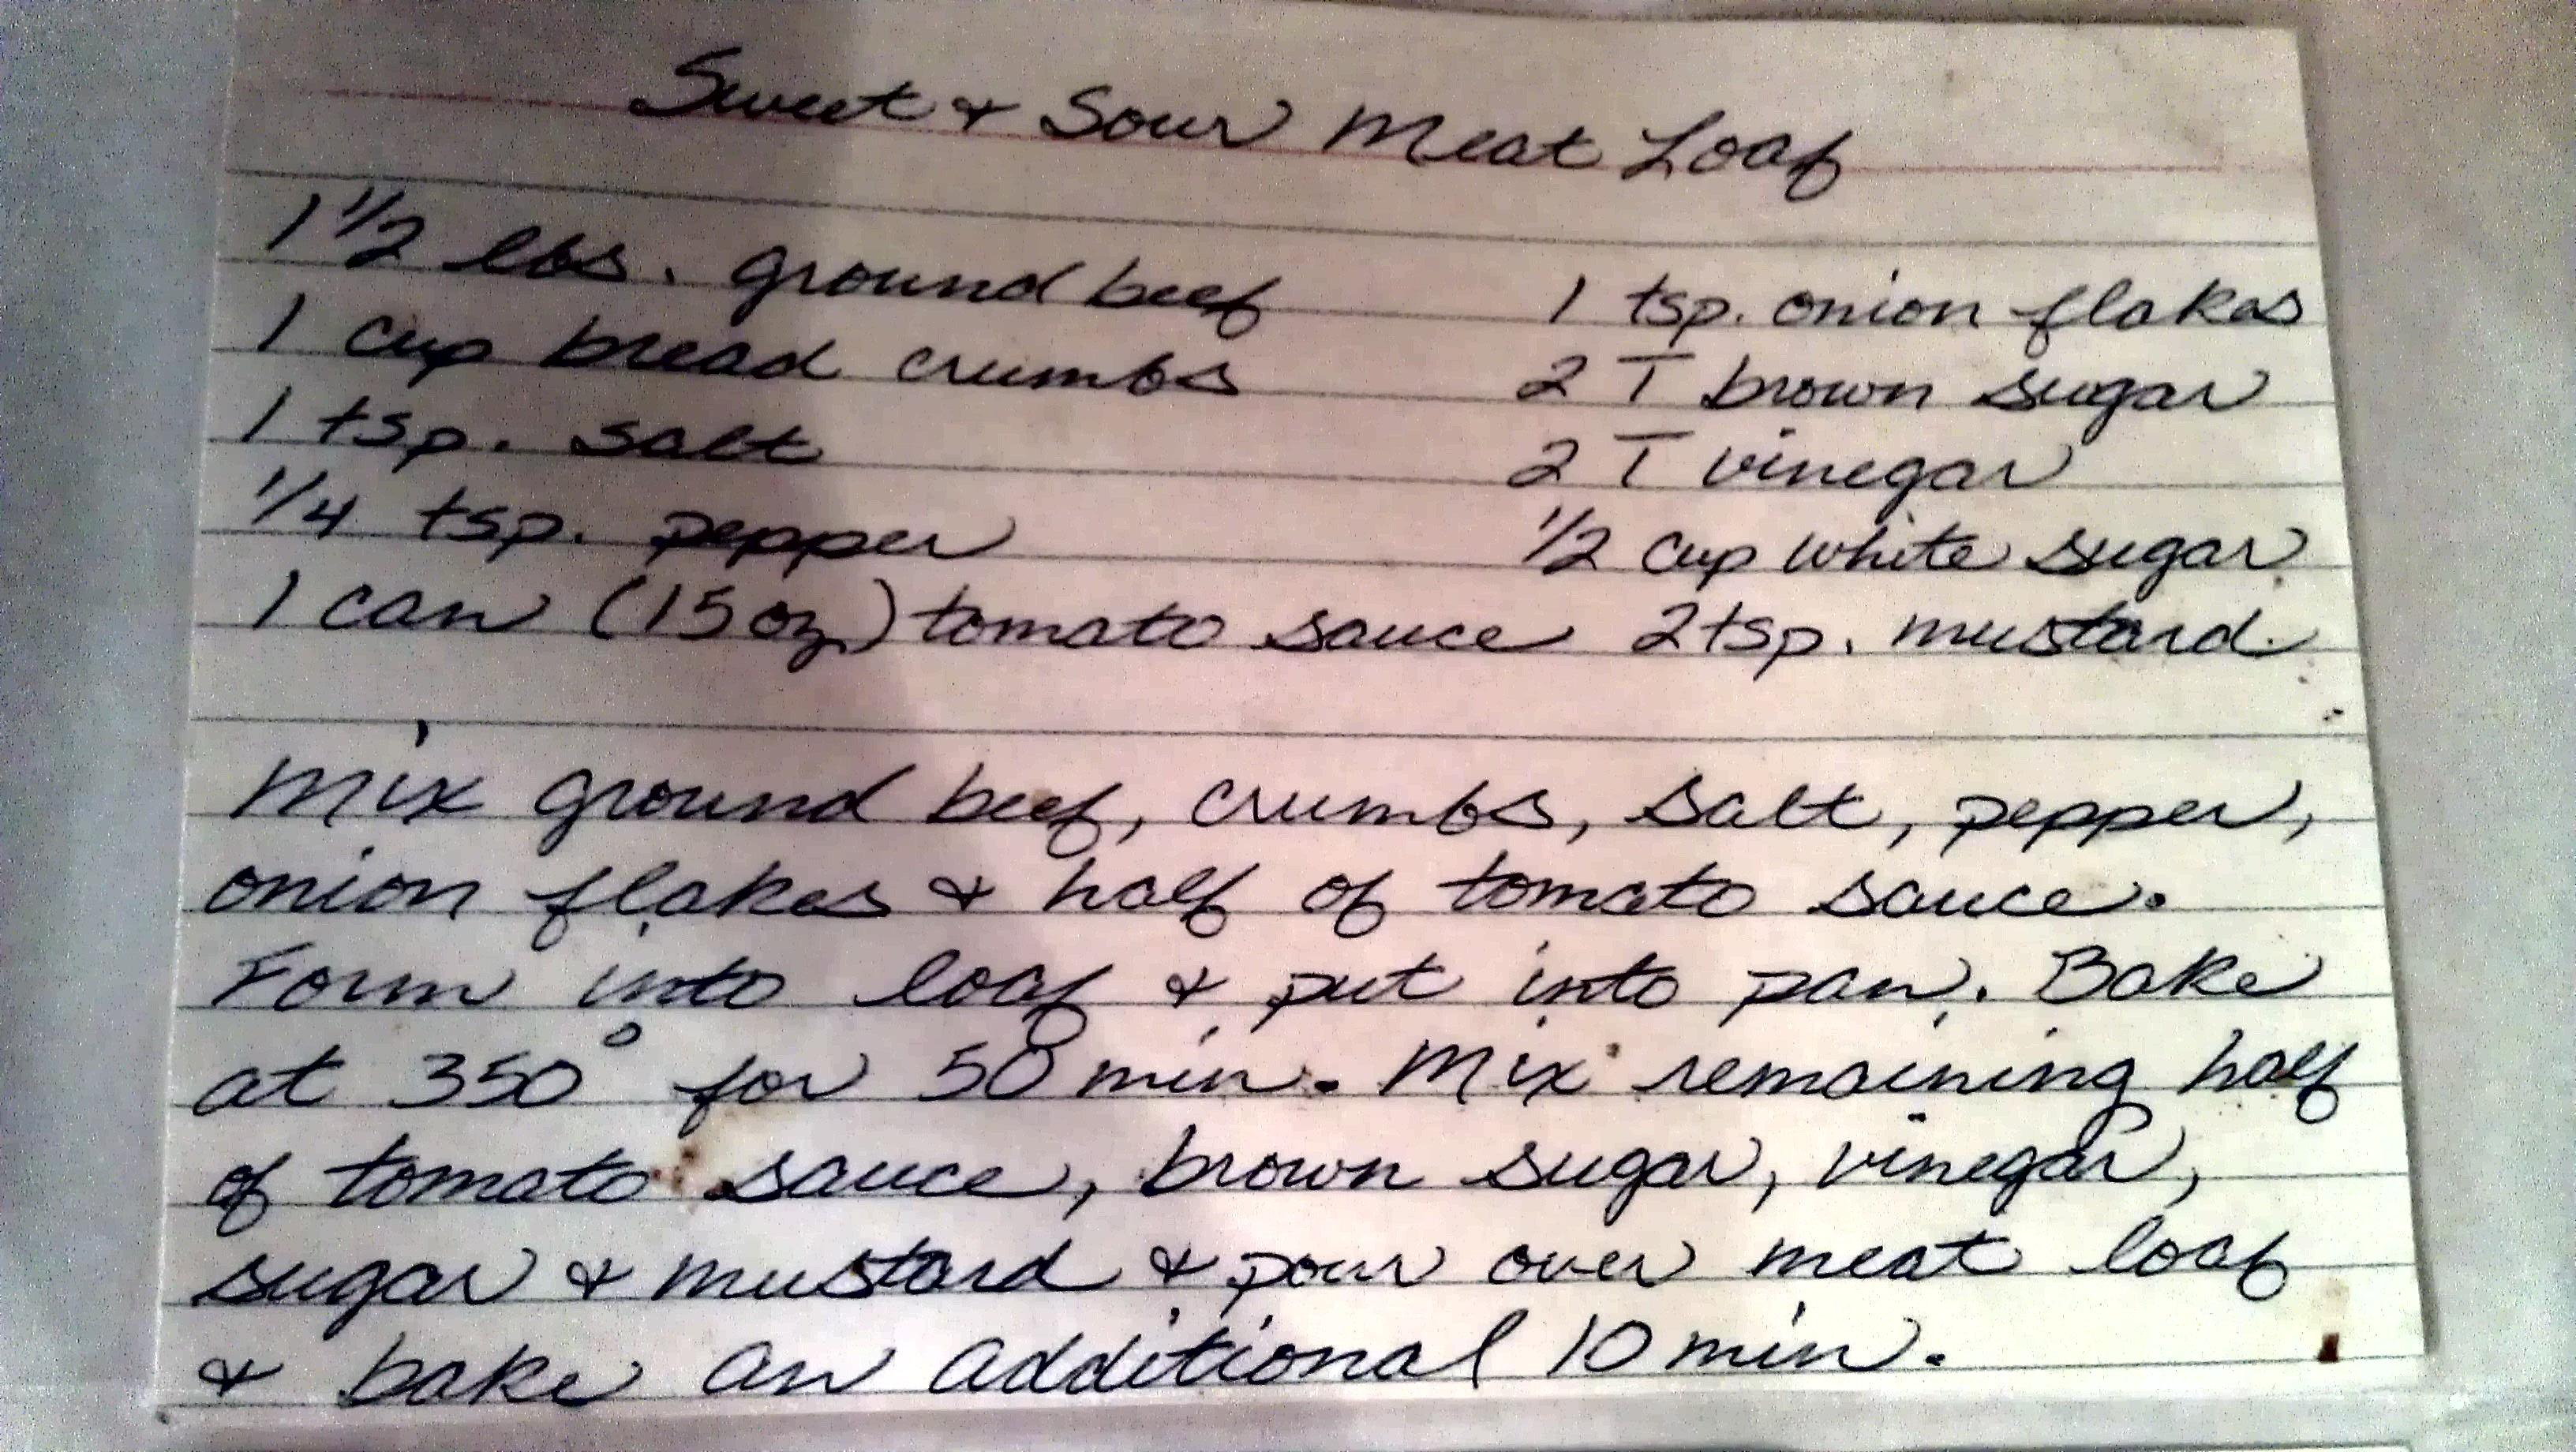 Sweet & Sour Meat Loaf
1 1/2 lbs. ground beef
1 cup bread crumbs
1 tsp. salt
1/4 tsp. pepper
1 can (15 oz) tomato sauce
1 tsp. onion flakes
2 T brown sugar
2 T vinegar
1/2 cup white sugar
2 tsp. mustard
Mix ground beef, crumbs, salt, pepper,
onion flakes & half of tomato sauce.
Form into loaf & put into pan. Bake
at 350° for 50 min. Mix remaining half
of tomato sauce, brown sugar, vinegar,
sugar & mustard & pour over meat loaf
& bake an additional 10 min.